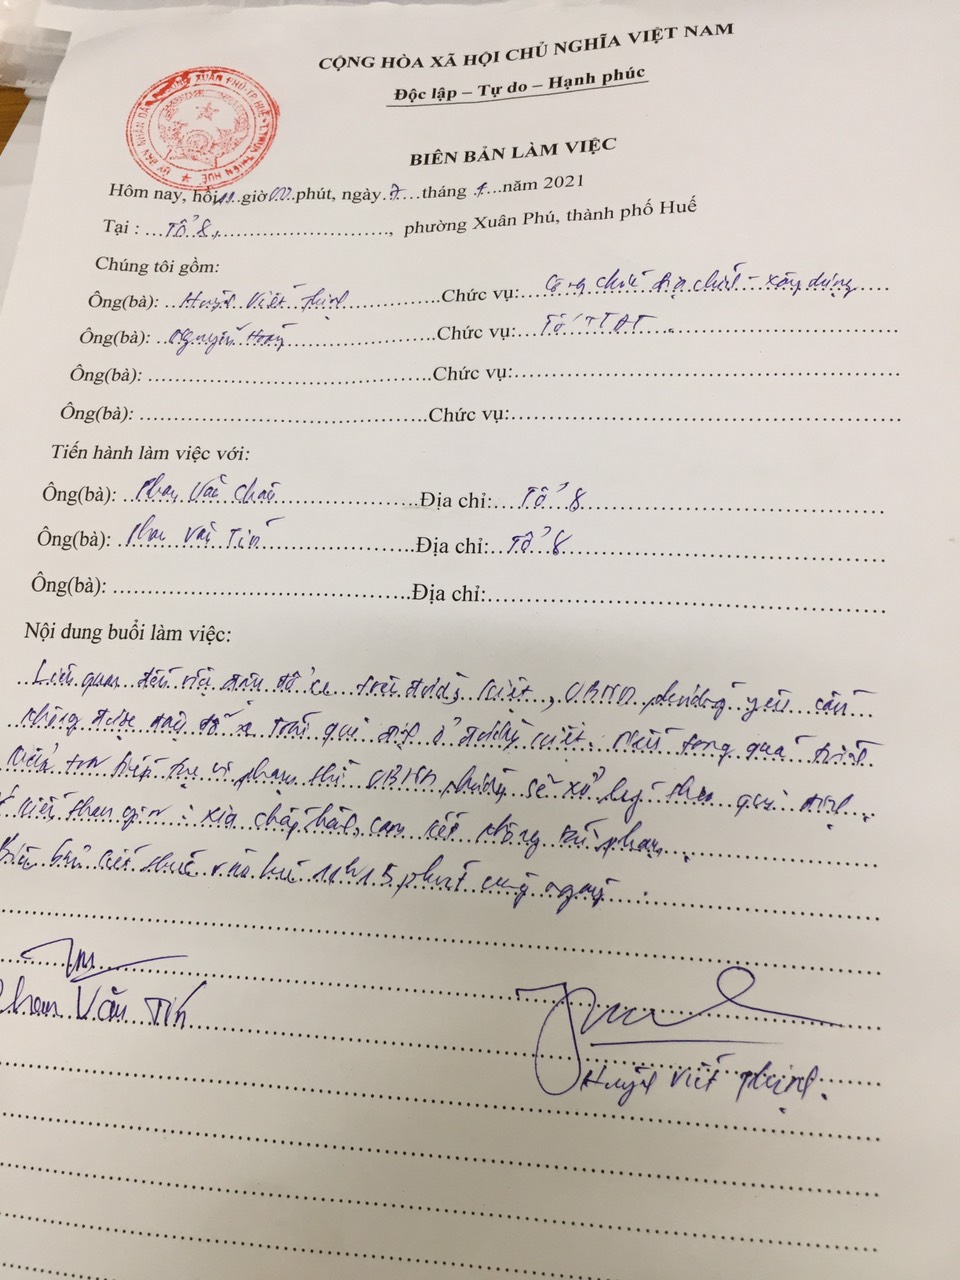 CỘNG HÒA XÃ HỘI CHỦ NGHĨA VIỆT NAM
Độc lập – Tự do – Hạnh phúc
BIÊN BẢN LÀM VIỆC
Hôm nay, hồi giờ 00 phút, ngày tháng năm 2021
Tại : Tổ 8, phường Xuân Phú, thành phố Huế
Chúng tôi gồm:
Ông(bà): Huỳnh Viết Thịnh Chức vụ: Công chức địa chính - xây dựng
Ông(bà): Nguyễn Hoàng Chức vụ: Tổ TTĐT
Ông(bà): Chức vụ:
Ông(bà): Chức vụ:
Tiến hành làm việc với:
Ông(bà): Phan Văn Địa chỉ: Tổ 8
Ông(bà): Phan Văn Tín Địa chỉ: Tổ 8
Ông(bà): Địa chỉ:
Nội dung buổi làm việc:
Liên quan đến việc đường kiệt, UBND phường yêu cầu
không được qui định ở đường kiệt. Nếu trong quá trình
kiểm tra tiếp tục vi phạm thì UBND phường sẽ xử lý theo qui định.
kiến tham gia: xin chấp hành, cam kết không tái phạm.
Biên bản kết thúc vào lúc phút cùng ngày.
Phan Văn Tín
Huỳnh Viết Thịnh.